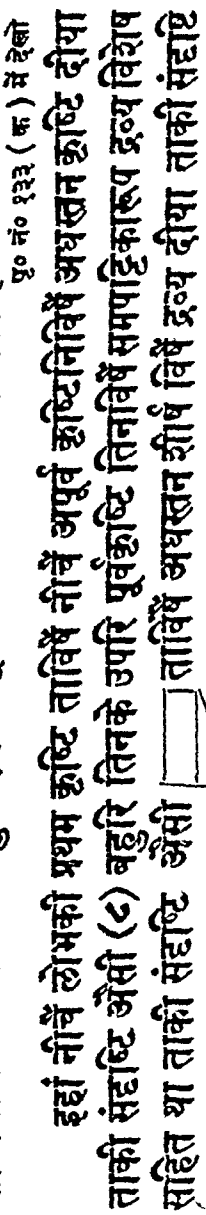 पृ० नं० १२३ (क) में देखो
इहां नीचैं लोभकी प्रथम कृष्टि ताविषैं नीचैं अपूर्व कृष्टिनिविषैं अधस्तन कृष्टि दीया
ताकी संदृष्टि अैसी (२) बहुरि तिनके उपरि पूर्वकृष्टि तिनविषैं समपट्टिकारूप द्रव्य विशेष
सहित था ताकी संदृष्टि अैसी ताविषैं अधस्तन शीर्ष विषैं द्रव्य दीया ताकी संदृष्टि